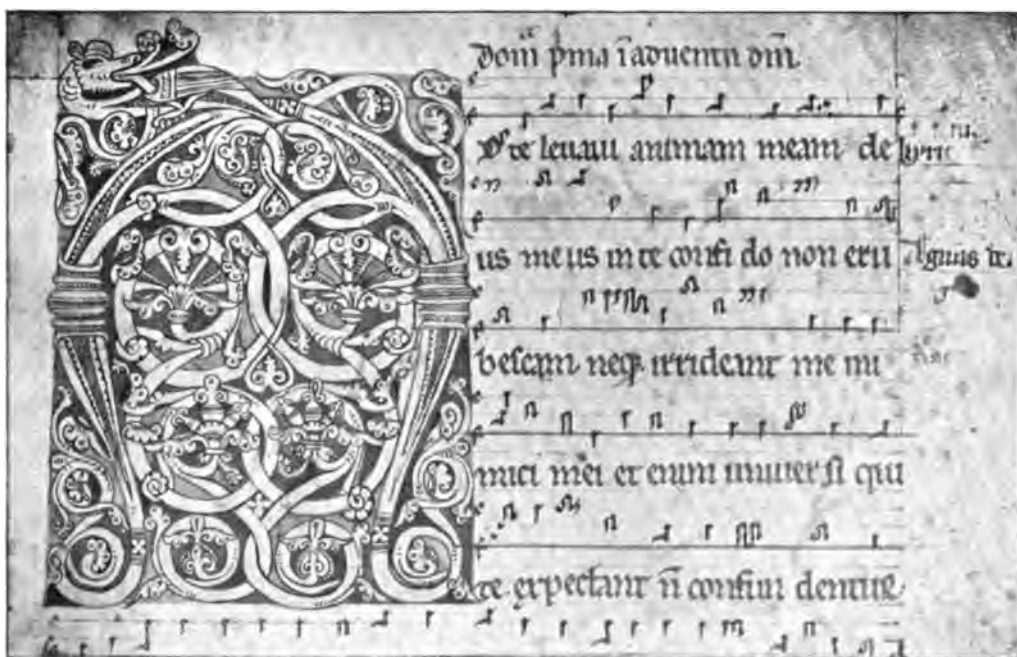 Dom̄ pma ī aduentu dn̄i.
te leuaui animam meam de
us meus in te confi do non eru
bescam neq; irrideant me ini
mici mei et enim uniuer si qui
te expectant n̄ confun dentur.